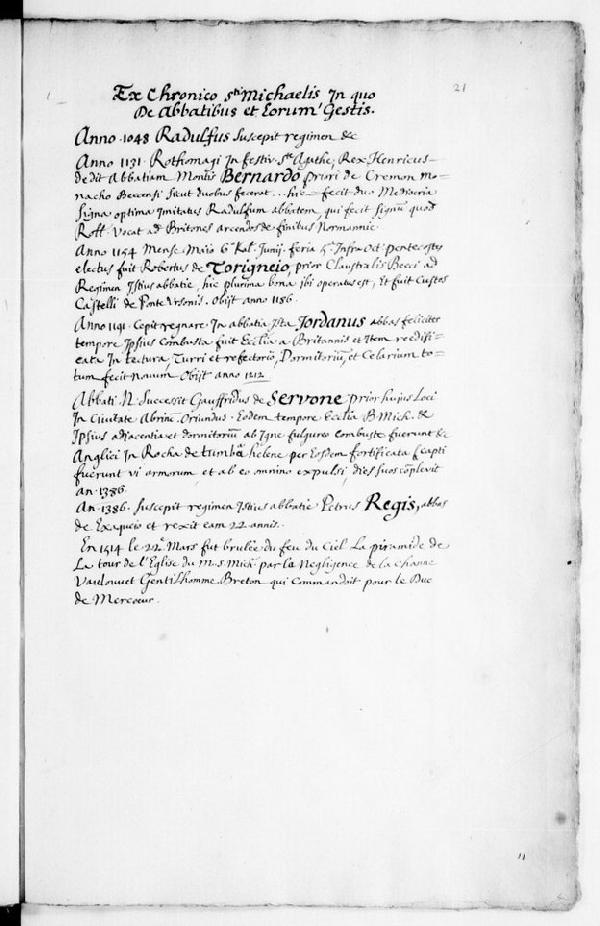 21
Ex Chronico sti Michaelis In quo
De Abbatibus et Eorum Gestis.
Anno 1048 Radulfus suscepit regimen &c
Anno 1131. Rothomagi In festiv. ste Agathe, Rex Henricus
dedit Abbatiam Montis Bernardo priori de Cremon mo-
nacho Beccensi sicut duobus fecerat .. hic fecit duo
signa optima Imitatus Radulfum abbatem, qui fecit signum quod
Roll. vocat ad Britones arcendos de finibus Normannie.
Anno 1154 Mense Maio 6 Kal. Junij. feria 5 Infra Oct. pentecostes
electus fuit Robertus de Torigneio, prior Claustralis Becci ad
Regimen Istius abbatie, hic plurima bona ibi operatus est, Et fuit Custos
Castelli de Ponte Ursonis. Obijt anno 1186.
Anno 1191. Cepit regnare In abbatia Ista Jordanus abbas feliciter
tempore Ipsius Combusta fuit Ecclia a Britannis et Item reedifi-
cata In tectura, Turri et refectorium, Dormitorium, et Celarium to-
tum fecit novum Obijt anno 1212
Abbati N. Successit Gauffridus de Servone prior hujus Loci
In Civitate Abrinc. Oriundus. Eodem tempore Ecclia B. Mich. &
Ipsius adjacentia et dormitorium ab Igne fulgureo combuste fuerunt &c
Anglici In Rocha de tumba helene per Eosdem fortificata Capti
fuerunt vi armorum et ab eo omnino expulsi, dies suos complevit
an. 1386.
An. 1386. Suscepit regimen Istius abbatie Petrus Regis, abbas
de Exaqueio et rexit eam 22 annis.
En 1514 le 22e Mars fut brulée du feu du Ciel La piramide de
La tour de l'Eglise du M. S Mich. par la Negligence de la
Vaulouvet Gentilhomme Breton qui Commandoit pour le Duc
de Mercoeur.